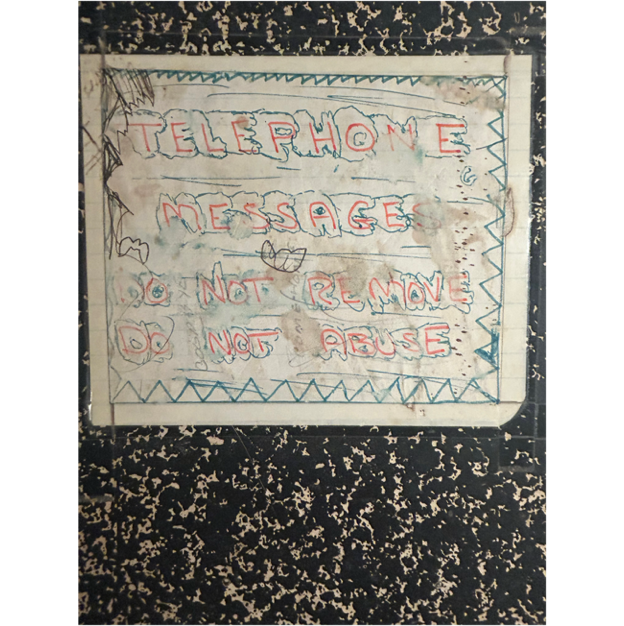 TELEPHONE
MESSAGES
DO NOT REMOVE
DO NOT ABUSE